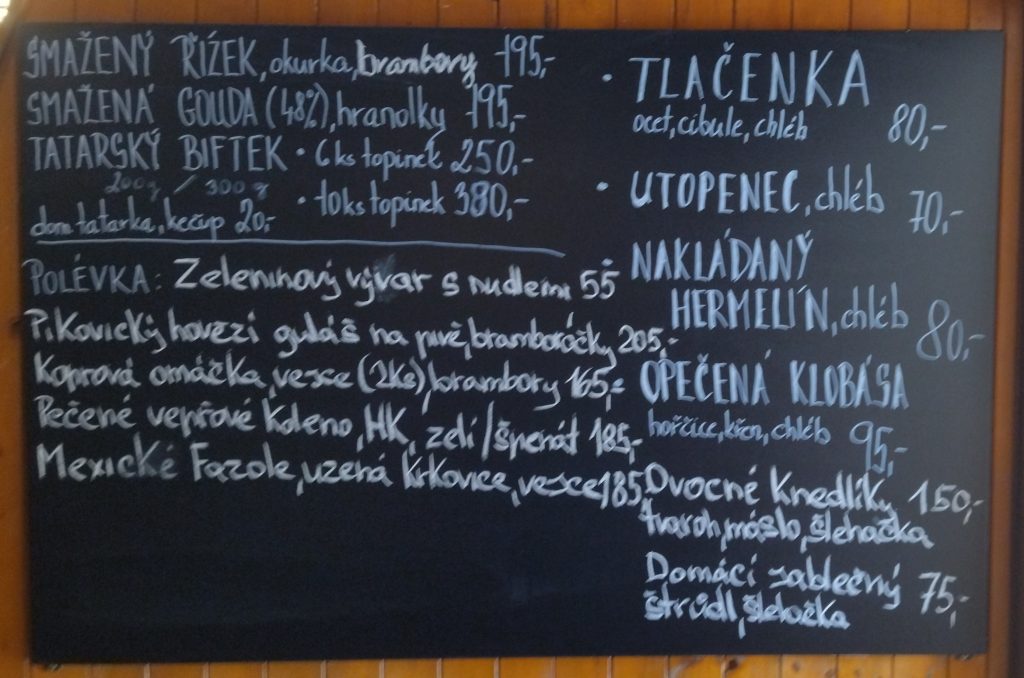 SMAŽENÝ ŘÍZEK, okurka, brambory 195,-
SMAŽENÁ GOUDA (48%), hranolky 195,-
TATARSKÝ BIFTEK • 6ks topinek 250,-
200g / 300g • 10ks topinek 380,-
dom. tatarka, kečup 20,-
POLÉVKA: Zeleninový vývar s nudlemi 55
Pikovický hovězí guláš na pivě, bramboráčky 205,-
Koprová omáčka, vejce (2ks), brambory 165,-
Pečené vepřové koleno, HK, zelí / špenát 185,-
Mexické Fazole, uzená krkovice, vejce 185
• TLAČENKA
ocet, cibule, chléb 80,-
• UTOPENEC, chléb 70,-
NAKLÁDANÝ
HERMELÍN, chléb 80,-
OPEČENÁ KLOBÁSA
hořčice, křen, chléb 95,-
Ovocné Knedlíky 150,-
tvaroh, máslo, šlehačka
Domácí jablečný 75,-
štrúdl, šlehačka